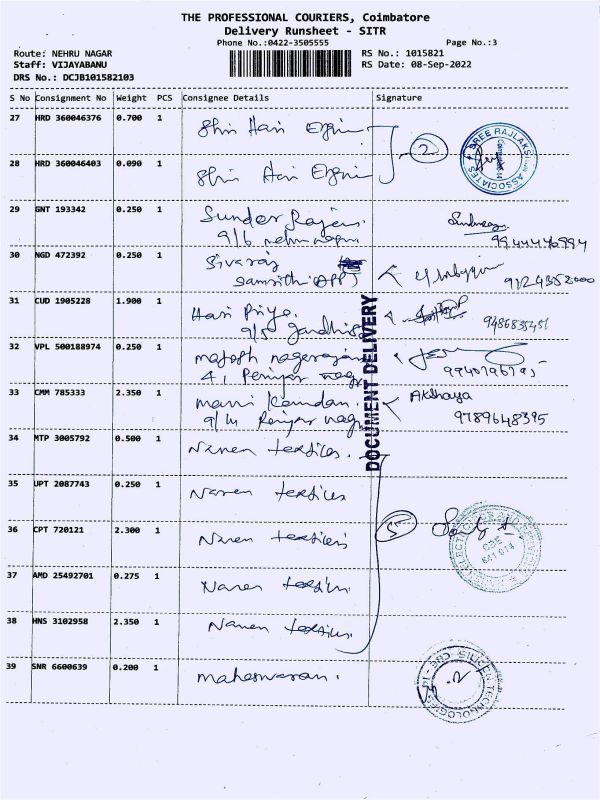 THE PROFESSIONAL COURIERS, Coimbatore
Delivery Runsheet - SITR
Phone No.:0422-3505555
Page No.:3
Route: NEHRU NAGAR
RS No.: 1015821
Staff: VIJAYABANU
RS Date: 08-Sep-2022
DRS No.: DCJB101582103
S No Consignment No Weight PCS Consignee Details Signature
27 HRD 360046376 0.700 1 Shri Hari
28 HRD 360046403 0.090 1 Shri Hari
2
SREE RAJLAKSHMI ASSOCIATES
29 GNT 193342 0.250 1 Sunder
9/6 nehru nagar
30 NGD 472392 0.250 1 Sivaraj
Samrithi (APP)
31 CUD 1905228 1.900 1 Hari Priya.
9/5 gandhi
9486835451
32 VPL 500188974 0.250 1 nagarajan
4, Periyar nagr
33 CMM 785333 2.350 1 mani
9/14 Periyar nagr
Akshaya
9789648395
DOCUMENT DELIVERY
34 MTP 3005792 0.500 1 Naren textiles.
35 UPT 2087743 0.250 1 Naren textiles
36 CPT 720121 2.300 1 Naren textiles
5
CBE
641 014
37 AMD 25492701 0.275 1 Naren textiles
38 HNS 3102958 2.350 1 Naren textiles.
39 SNR 6600639 0.200 1 maheswaran.